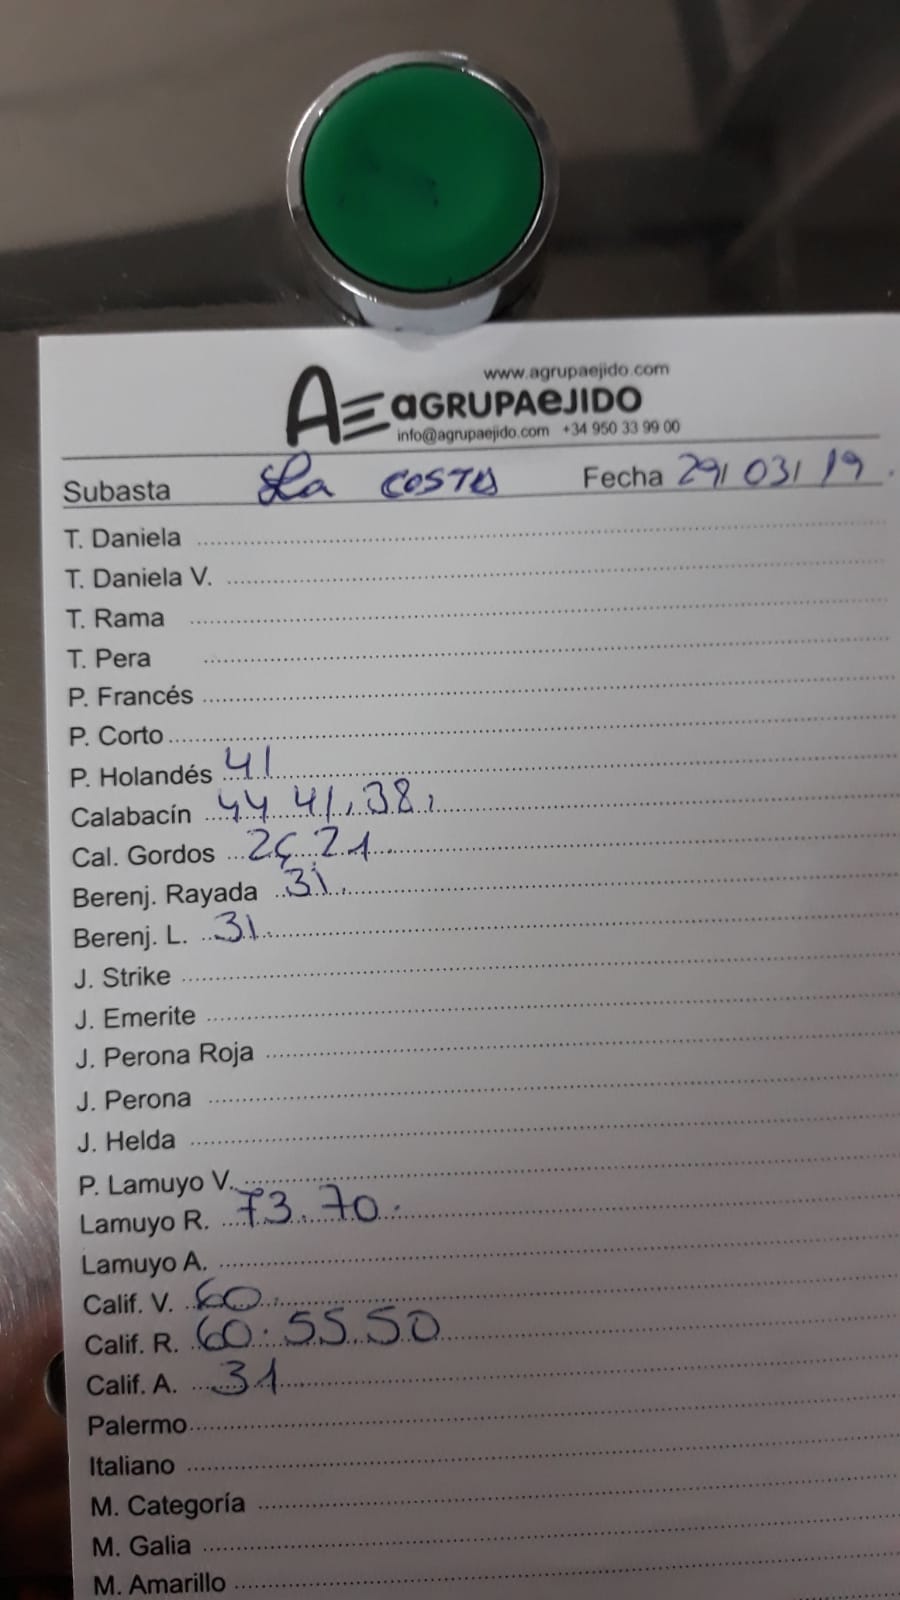 www.agrupaejido.com
AE aGRUPAeJIDO
info@agrupaejido.com +34 950 33 99 00
Subasta La COSTA Fecha 29/03/19.
T. Daniela
T. Daniela V.
T. Rama
T. Pera
P. Francés
P. Corto
P. Holandés 41
Calabacín 44 41, 38,
Cal. Gordos 21.
Berenj. Rayada 31.
Berenj. L. 31.
J. Strike
J. Emerite
J. Perona Roja
J. Perona
J. Helda
P. Lamuyo V.
Lamuyo R. 73. 70.
Lamuyo A.
Calif. V. 60.
Calif. R. 60. 55. 50
Calif. A. 31
Palermo
Italiano
M. Categoría
M. Galia
M. Amarillo